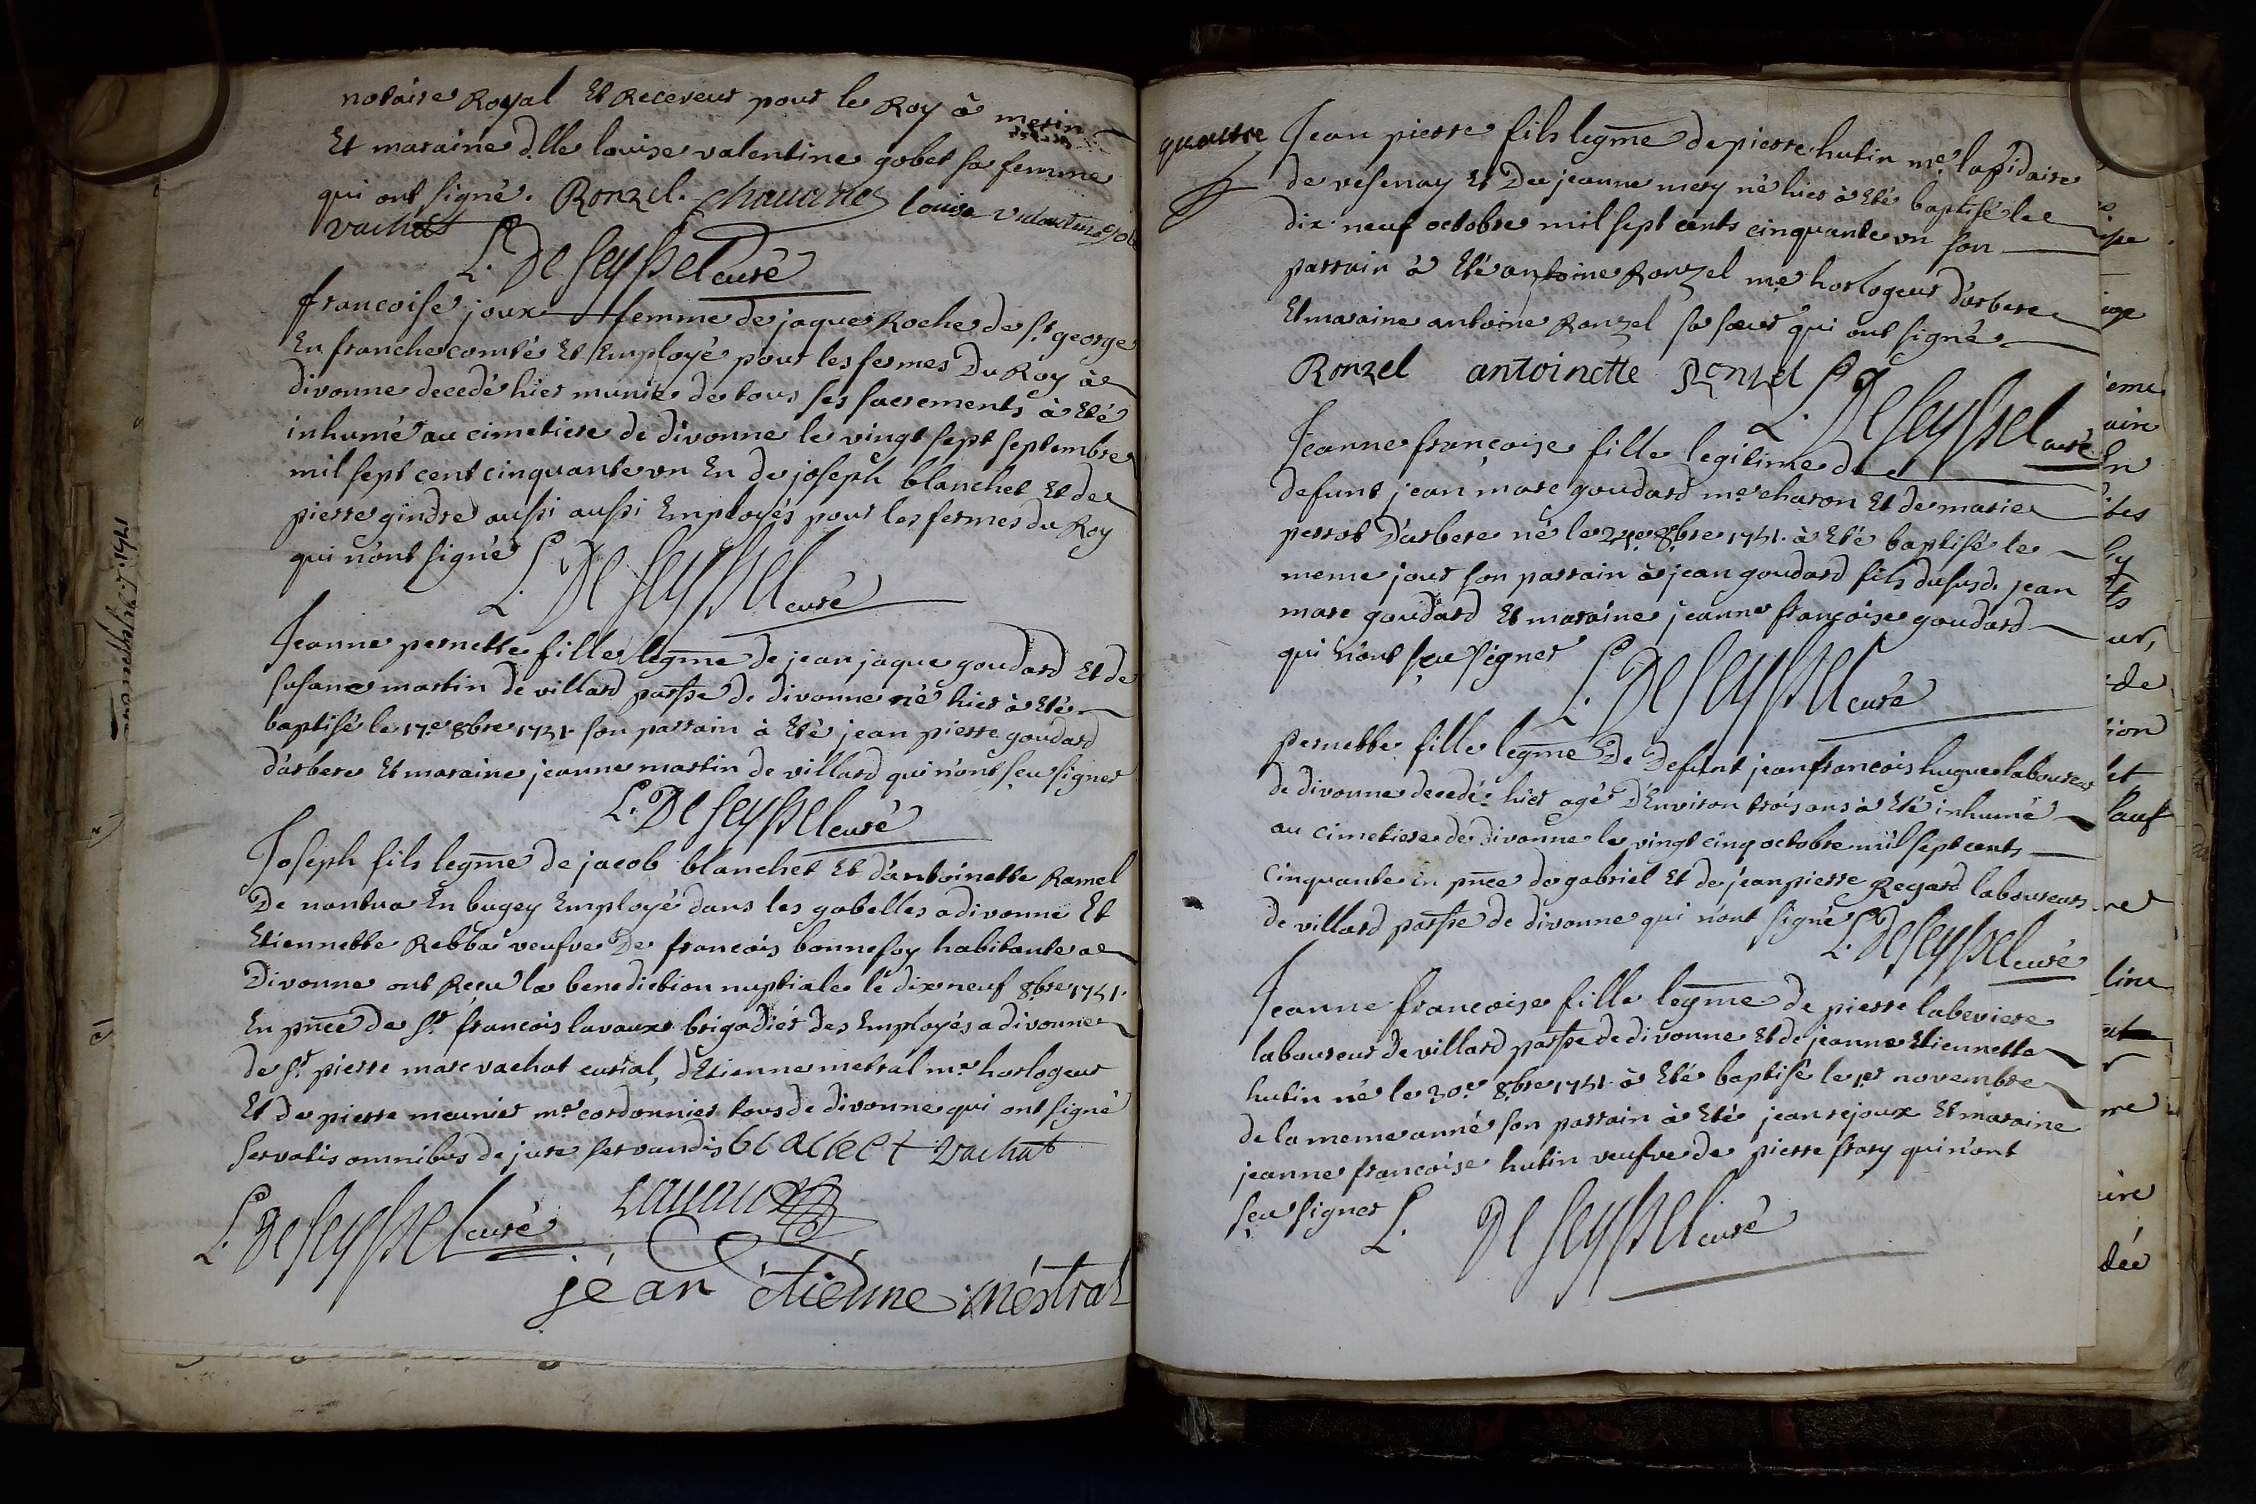 notaire Royal Et Receveur pour le Roy à meirin
Et maraine d.lle louise valentine gobet sa femme
qui ont signé. Ronzel. chavanes louise valentine
vachat
L. De seyssel curé
francoise joux femme de jaque Roche de st george
En franchecomté Et Employé pour les fermes Du Roy à
divonne decedé hier munie de tous ses sacrements à Eté
inhumé au cimetiere de divonne le vingt sept septembre
mil sept cent cinquante un En de joseph blanchet Et de
pierre gindre aussi aussi Employés pour les fermes du Roy
qui n'ont signé L. De seyssel curé
Jeanne pernette fille legme de jean jaque goudard Et de
susane martin de villard parsse de divonne né hier à Eté
baptisé le 17e 8bre 1751. son parrain à Eté jean pierre goudard
d'arbere Et maraine jeanne martin de villard qui n'ont sçu signer
L. De seyssel curé
Joseph fils legme de jacob blanchet Et d'antoinette Ramel
De nantua En bugey Employé dans les gabelles a divonne Et
Etiennette Rebbai veufve De francois bonnefoy habitante a
Divonne ont Reçu la benediction nuptiale le dix neuf 8bre 1751.
En pnce de sr francois lavaux brigadier des Employés a divonne
de sr pierre marc vachat curial, d'Etienne metral me horlogeur
Et de pierre meunier me cordonnier tous de divonne qui ont signé
servatis omnibus de jure servandis blanchet vachat
L. De seyssel curé lavaux
jéan étiénne méstral
quattre
Jean pierre fils legme de pierre hutin me lapidaire
de vesenay Et De jeanne mery né hier à Eté baptisé le
dix neuf octobre mil sept cents cinquante un son
parrain à Eté antoine Ronzel me horlogeur d'arbere
Et maraine antoine Ronzel sa sœur qui ont signé
Ronzel antoinette Ronzel L. De seyssel curé
Jeanne françoise fille legitime de
defunt jean marc goudard me charon Et de marie
perrot D'arbere né le 21e 8bre 1751. à Eté baptisé le
meme jour son parrain à jean goudard fils du susd. jean
marc goudard Et maraine jeanne françoise goudard
qui n'ont sçu signer L. De seyssel curé
pernette fille legme De Defunt jean francois hugue laboureur
de divonne decedé hier agé D'Environ trois ans à Eté inhumé
au cimetiere de divonne le vingt cinq octobre mil sept cents
cinquante in pnce de gabriel Et de jean pierre Regard laboureurs
de villard parsse de divonne qui n'ont signé L. De seyssel curé
Jeanne francoise fille legme de pierre labeviere
laboureur de villard parsse de divonne Et de jeanne Etiennette
hutin né le 30e 8bre 1751. à Eté baptisé le 1er novembre
de la meme anné son parrain à Eté jean rejoux Et maraine
jeanne françoise hutin veufve de pierre frary qui n'ont
sçu signer L. De seyssel curé